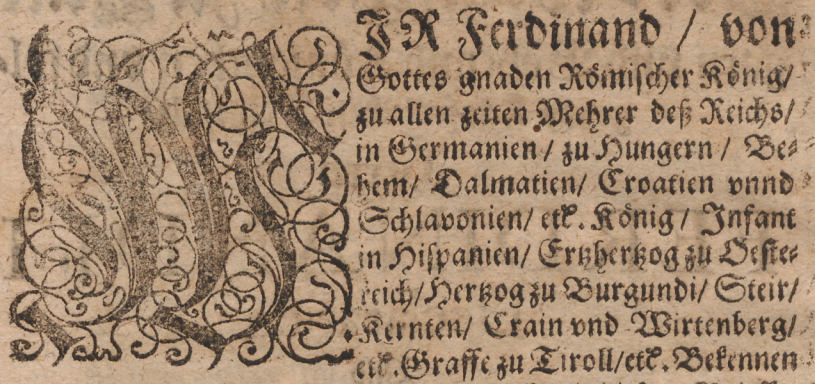 WIR Ferdinand / von
Gottes gnaden Römischer König/
zu allen zeiten Mehrer deß Reichs/
in Germanien / zu Hungern / Be⸗
hem/ Dalmatien/ Croatien vnnd
Schlavonien/ etc. König / Infant
in Hispanien/ Ertzhertzog zu Oeste⸗
reich/ Hertzog zu Burgundi/ Steir/
Kernten/ Crain vnd Wirtenberg/
etc. Graffe zu Tiroll/ etc. Bekennen